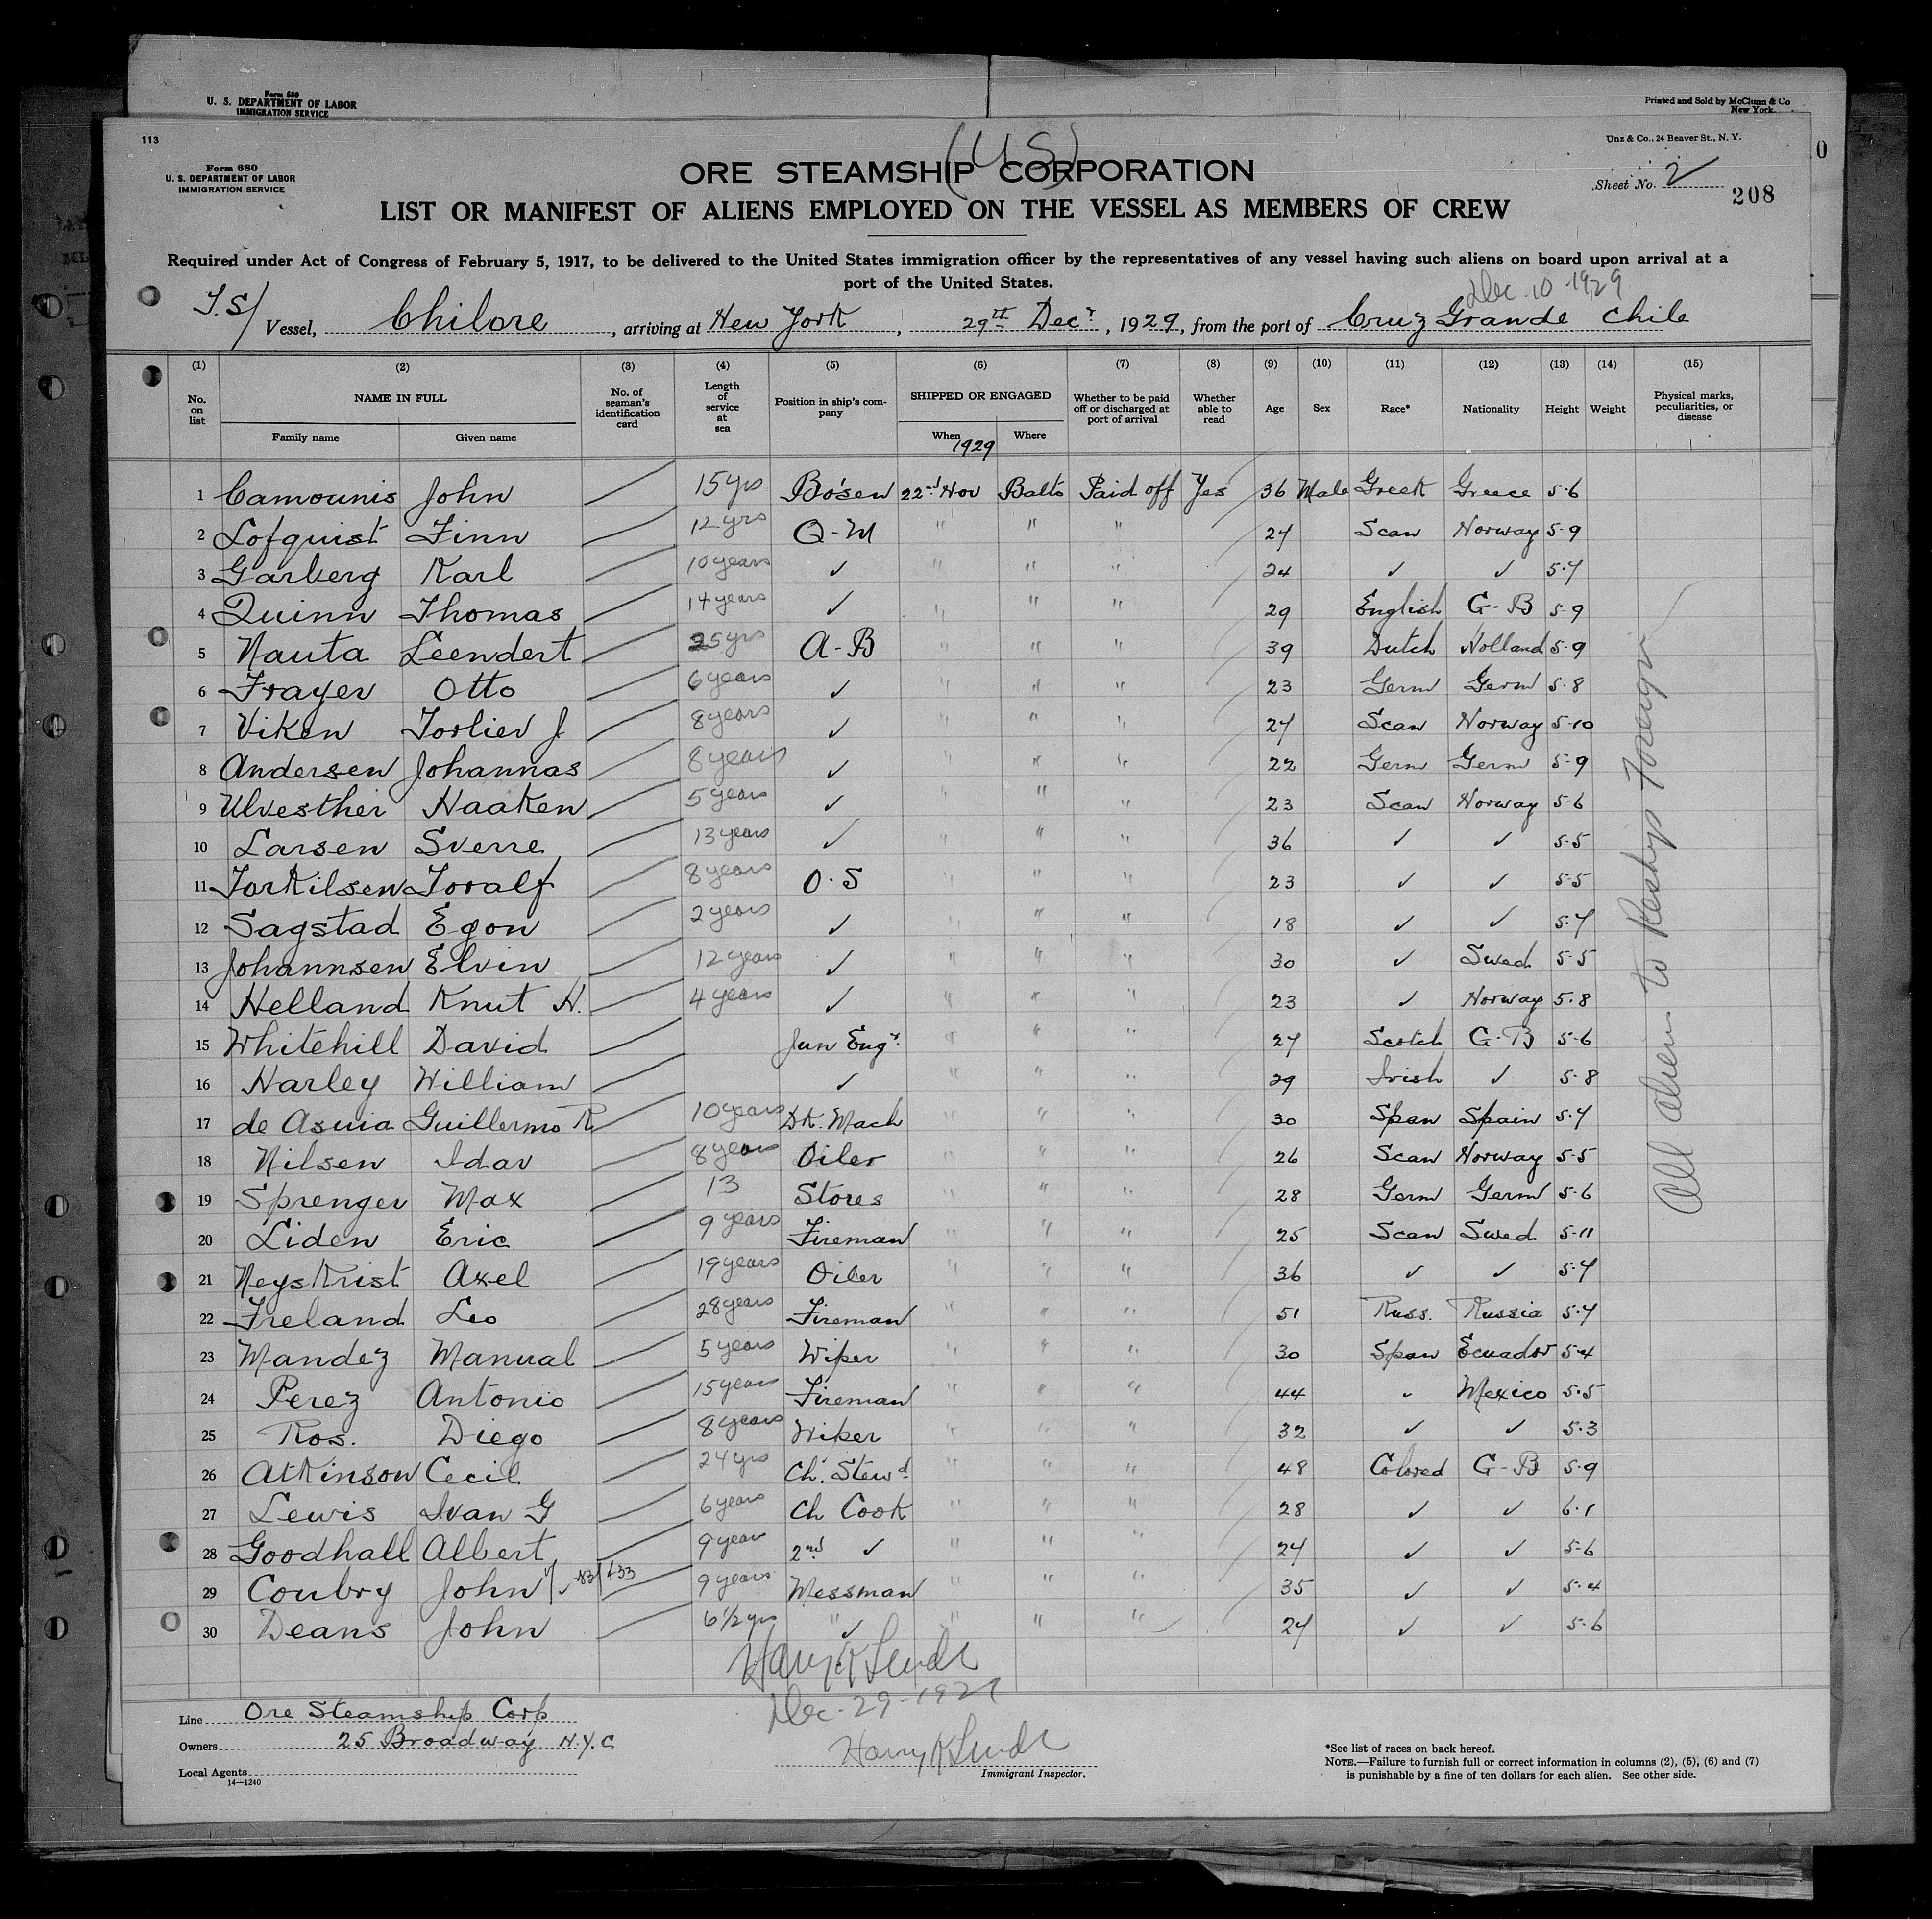 Form 680
U. S. DEPARTMENT OF LABOR
IMMIGRATION SERVICE
Printed and Sold by McClunn & Co
New York.
113
Unz & Co., 24 Beaver St., N. Y.
Form 680
U. S. DEPARTMENT OF LABOR
IMMIGRATION SERVICE
(US)
ORE STEAMSHIP CORPORATION
Sheet No. 2
208
LIST OR MANIFEST OF ALIENS EMPLOYED ON THE VESSEL AS MEMBERS OF CREW
Required under Act of Congress of February 5, 1917, to be delivered to the United States immigration officer by the representatives of any vessel having such aliens on board upon arrival at a
port of the United States.
Dec. 10 1929
T.S/ Vessel, Chilore, arriving at New York, 29th Decr, 1929, from the port of Cruz Grande Chile
(1) (2) (3) (4) (5) (6) (7) (8) (9) (10) (11) (12) (13) (14) (15)
No. on list NAME IN FULL Family name Given name No. of seaman's identification card Length of service at sea Position in ship's company SHIPPED OR ENGAGED When 1929 Where Whether to be paid off or discharged at port of arrival Whether able to read Age Sex Race* Nationality Height Weight Physical marks, peculiarities, or disease
1 Camounis John 15 yrs Bo'sen 22nd Nov Balto Paid off Yes 36 Male Greek Greece 5-6
2 Lofquist Finn 12 yrs Q-M " " " 27 Scan Norway 5-9
3 Garberg Karl 10 years ✓ " " " 24 ✓ ✓ 5-7
4 Quinn Thomas 14 years ✓ " " " 29 English G-B 5-9
5 Nauta Leendert 25 yrs A-B " " " 39 Dutch Holland 5-9
6 Frayer Otto 6 years ✓ " " " 23 Germ Germ 5-8
7 Viken Torlier J 8 years ✓ " " " 27 Scan Norway 5-10
8 Andersen Johannas 8 years ✓ " " " 22 Germ Germ 5-9
9 Ulvesther Haaken 5 years ✓ " " " 23 Scan Norway 5-6
10 Larsen Sverre 13 years ✓ " " " 36 ✓ ✓ 5-5
11 Torkilsen Toralf 8 years O.S " " " 23 ✓ ✓ 5-5
12 Sagstad Egon 2 years ✓ " " " 18 ✓ ✓ 5-7
13 Johannsen Elvin 12 years ✓ " " " 30 ✓ Swed 5-5
14 Helland Knut H. 4 years ✓ " " " 23 ✓ Norway 5.8
15 Whitehill David Jun Engr. " " " 27 Scotch G-B 5-6
16 Harley William ✓ " " " 29 Irish ✓ 5-8
17 de Asuia Guillermo R 10 years DK. Mach " " " 30 Span Spain 5-7
18 Nilsen Idar 8 years Oiler " " " 26 Scan Norway 5-5
19 Sprenger Max 13 Stores " " " 28 Germ Germ 5-6
20 Liden Eric 9 years Fireman " " " 25 Scan Swed 5-11
21 Neyskrist Axel 19 years Oiler " " " 36 ✓ ✓ 5-7
22 Freland Leo 28 years Fireman " " " 51 Russ. Russia 5-7
23 Mandez Manual 5 years Wiper " " " 30 Span Ecuador 5-4
24 Perez Antonio 15 years Fireman " " " 44 ✓ Mexico 5-5
25 Ros. Diego 8 years Wiper " " " 32 ✓ ✓ 5-3
26 Atkinson Cecil 24 yrs Ch. Stewd " " " 48 Colored G-B 5-9
27 Lewis Ivan G 6 years Ch Cook " " " 28 ✓ ✓ 6-1
28 Goodhall Albert 9 year 2nd ✓ " " " 24 ✓ ✓ 5-6
29 Coubry John 9 years Messman " " " 35 ✓ ✓ 5-4
30 Deans John 6 1/2 yrs " ✓ " " " 24 ✓ ✓ 5-6
All aliens to Reship Foreign
Dec-29-1929
Line Ore Steamship Corp
Owners 25 Broadway N.Y.C
Local Agents
14—1240
Immigrant Inspector.
*See list of races on back hereof.
NOTE.—Failure to furnish full or correct information in columns (2), (5), (6) and (7)
is punishable by a fine of ten dollars for each alien. See other side.